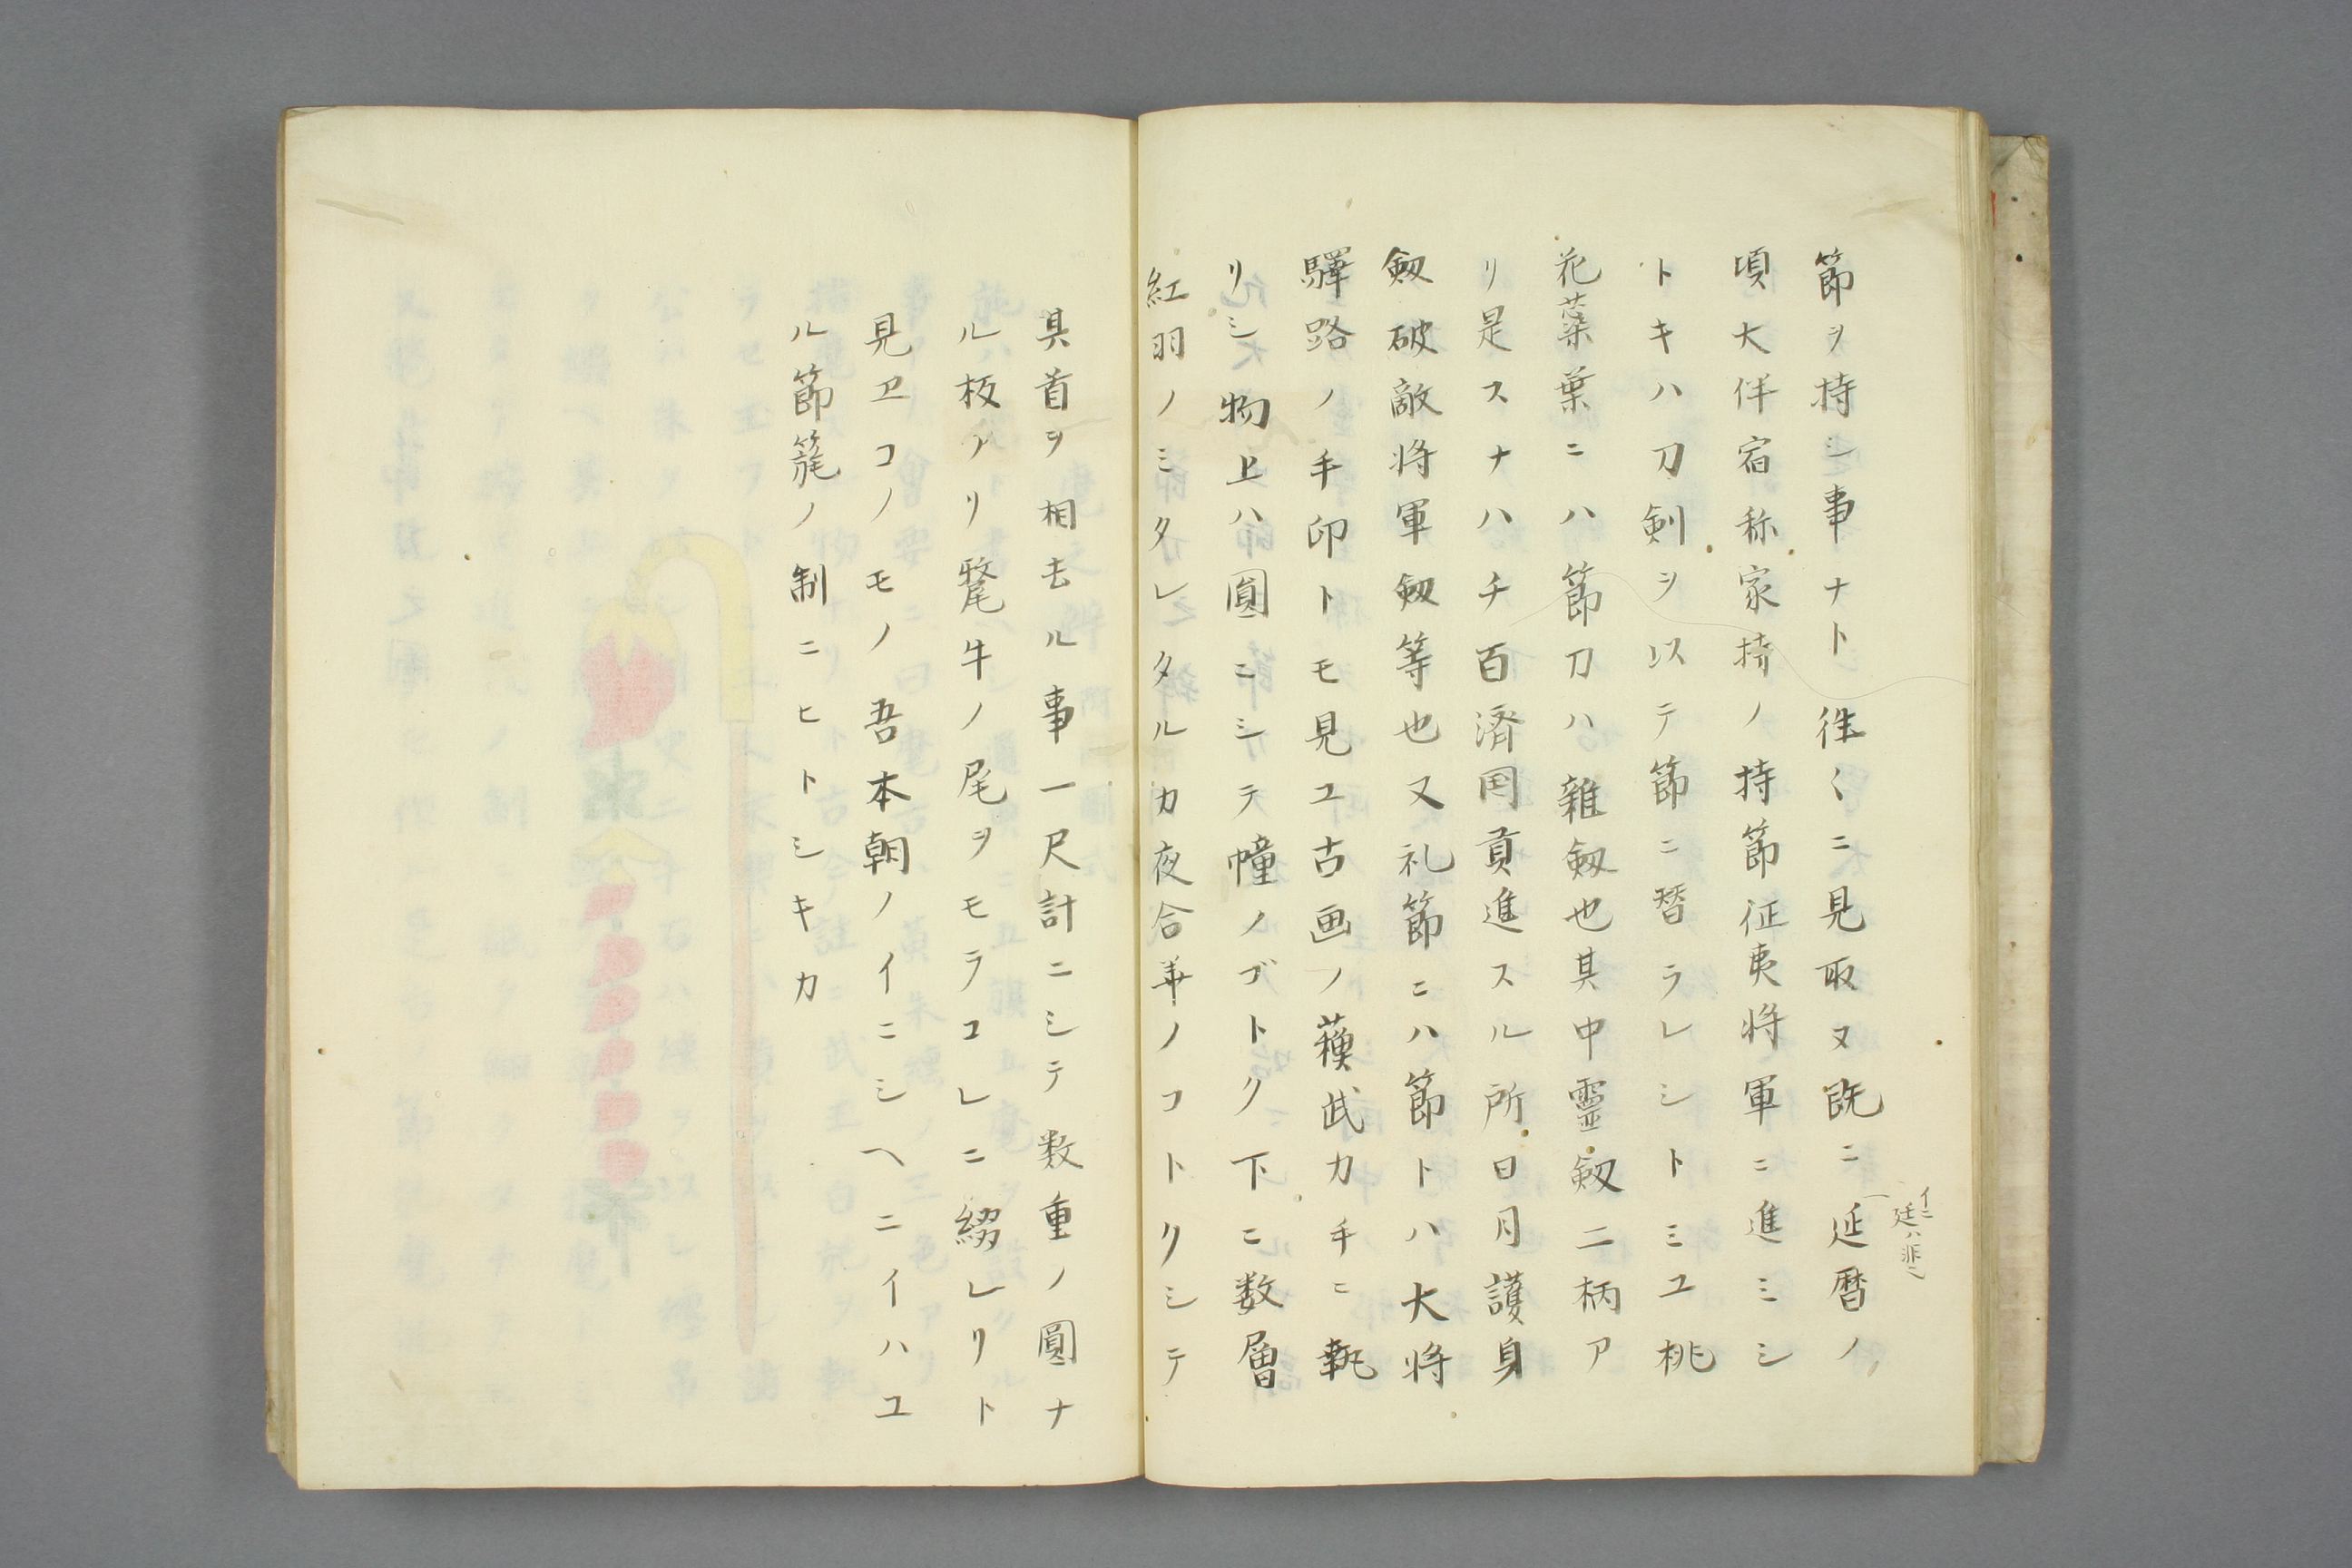 節ヲ持シ事ナト往〱ニ見取ヌ既ニ延暦ノ
イニ廷ハ非也
頃大伴宿祢家持ノ持節征夷将軍ニ進ミシ
トキハ刀剣ヲ以テ節ニ替ラレシトミユ桃
花蘂葉ニハ節刀ハ雑劔也其中霊劔二柄ア
リ是スナハチ百済国貢進スル所日月護身
劔破敵将軍劔等也又礼節ニハ節トハ大将
驛路ノ手印トモ見ユ古画ノ蘓武カ手ニ執
リシ物上ハ圓ニシテ幢ノゴトク下ニ数層
紅羽ノミタレタルカ夜合華ノコトクシテ
其首ヲ相去ル事一尺計ニシテ数重ノ圓ナ
ル板アリ氂牛ノ尾ヲモラコレニ綴レリト
見ヱコノモノ吾本朝ノイニシヘニイハユ
ル節氂ノ制ニヒトシキカ